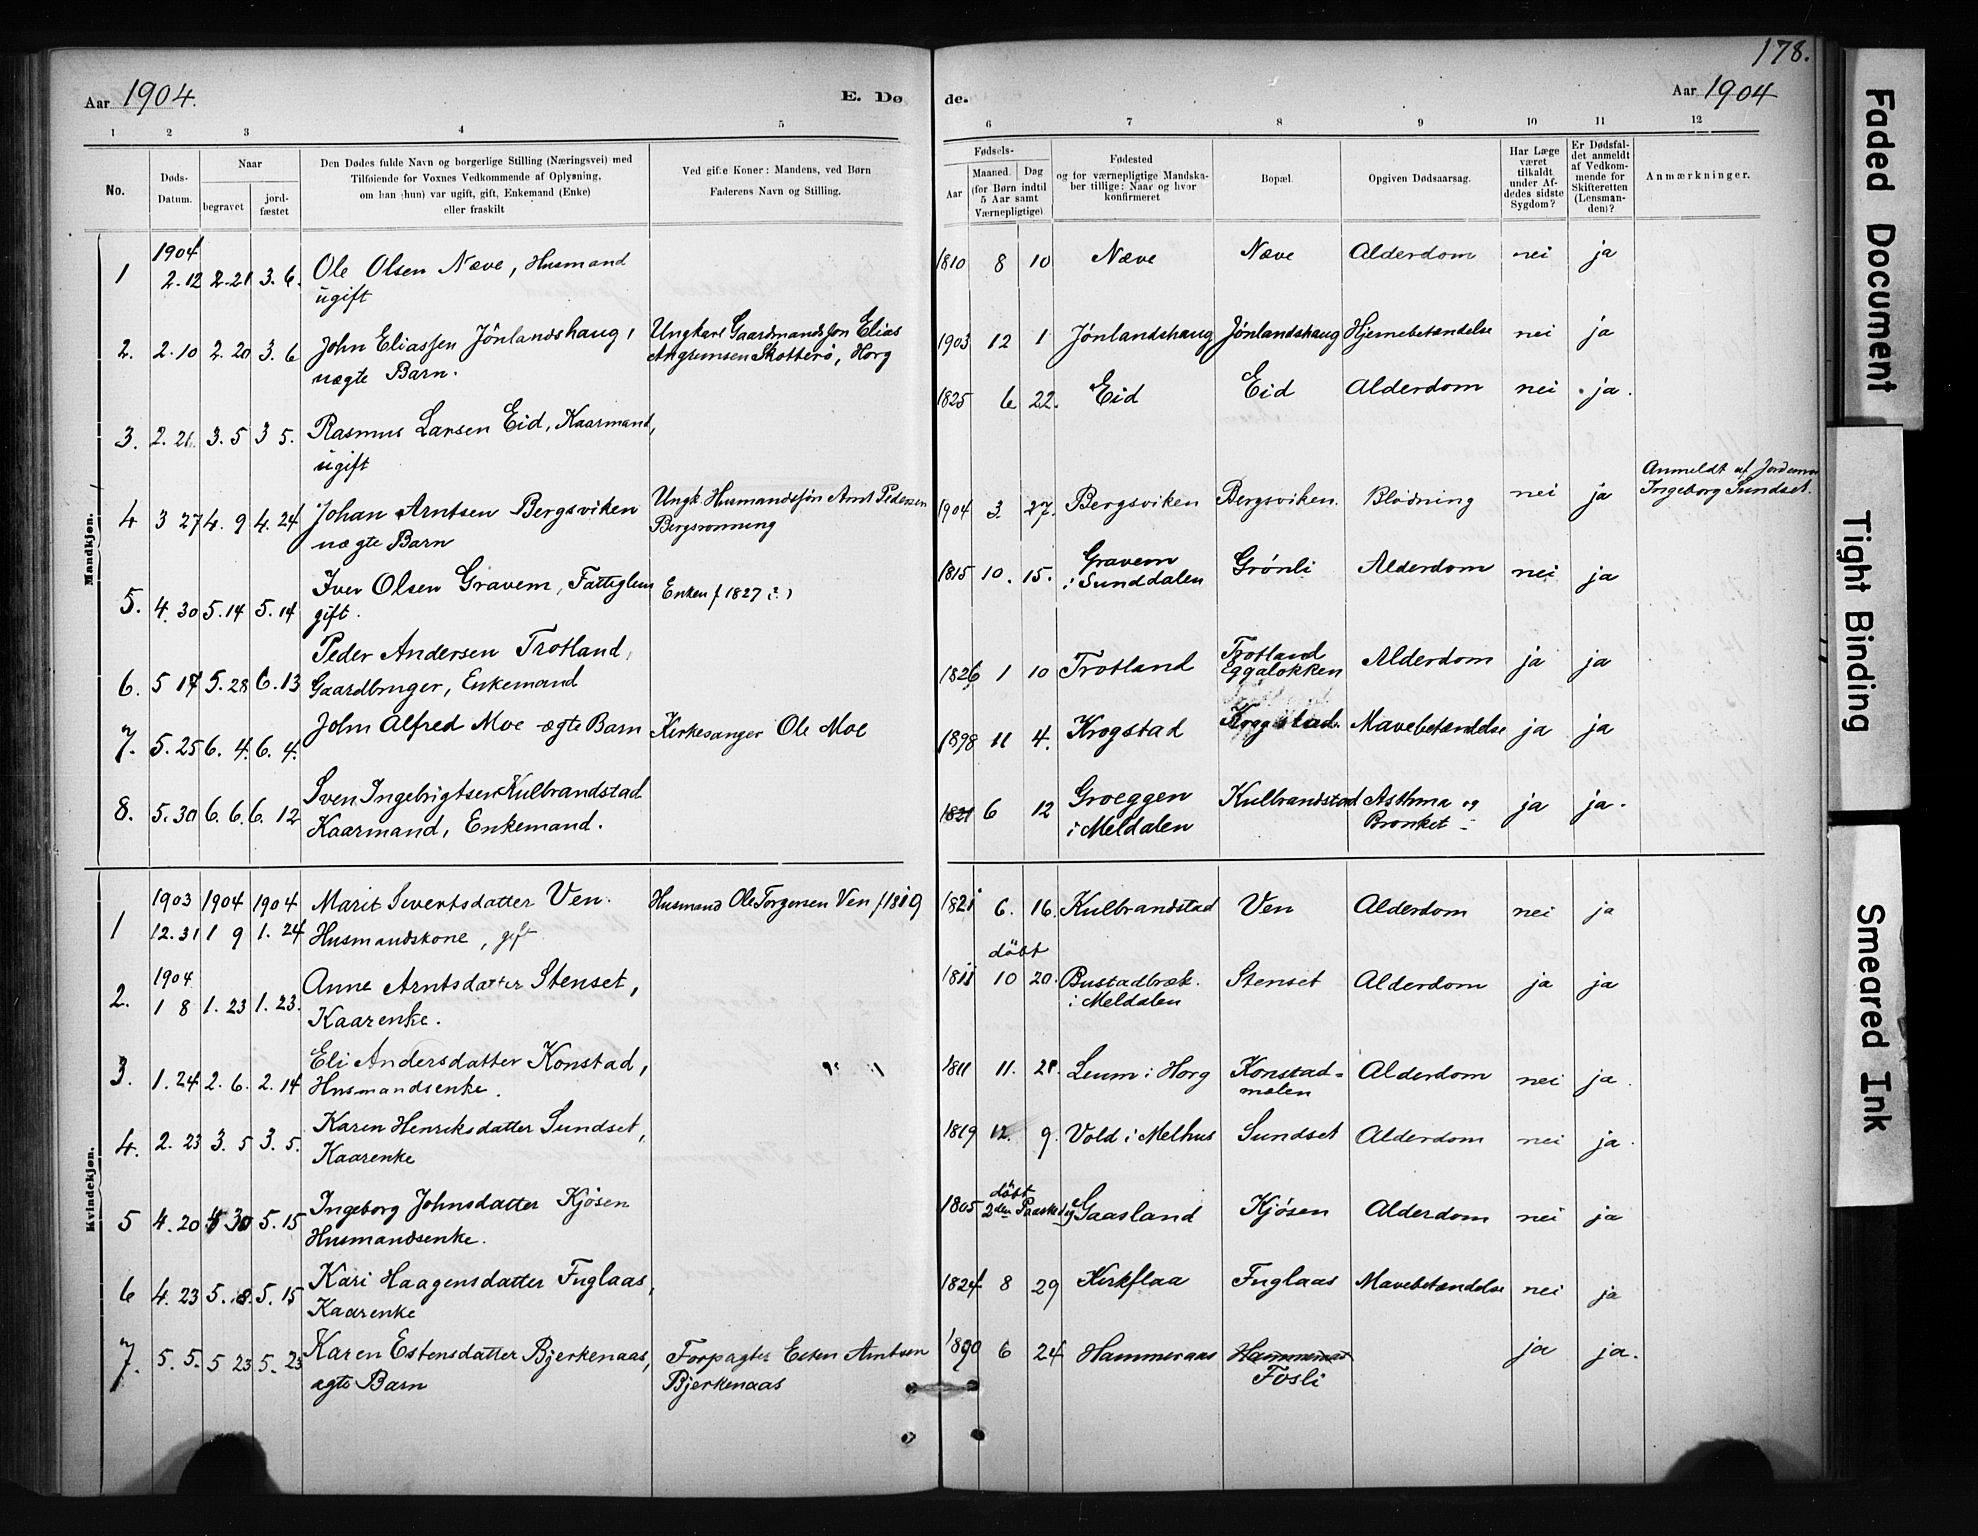 178.
Aar 1904. E. Dø de. Aar 1904
1 2 3 4 5 6 7 8 9 10 11 12
No.
Døds-
Datum.
Naar
begravet
jord-
fæstet
Den Dødes fulde Navn og borgerlige Stilling (Næringsvei) med
Tilføiende for Voxnes Vedkommende af Oplysning,
om han (hun) var ugift, gift, Enkemand (Enke)
eller fraskilt
Ved gifte Koner: Mandens, ved Børn
Faderens Navn og Stilling.
Fødsels-
Aar
Maaned. Dag
(for Børn indtil
5 Aar samt
Værnepligtige)
Fødested
og for værnepligtige Mandska-
ber tillige: Naar og hvor
konfirmeret
Bopæl.
Opgiven Dødsaarsag.
Har Læge
været
tilkaldt
under Af-
dødes sidste
Sygdom?
Er Dødsfal-
det anmeldt
af Vedkom-
mende for
Skifteretten
(Lensman-
den)?
Anmærkninger.
Mandkjøn.
1904
1 2.12 2.21 3.6. Ole Olsen Næve, Husmand 1810 8 10 Næve Næve Alderdom nei ja
ugift
2. 2.10 2.20 3.6 John Eliassen Jönlandshaug, Ungkarl Gaardmandssøn Elias 1903 12 1 Jønlandshaug Jønlandshaug Hjernebetændelse nei ja
uægte Barn. Skotterö, Horg
3. 2.21. 3.5 3 5. Rasmus Larsen Eid, Kaarmand, 1825 6 22. Eid Eid Alderdom nei ja.
ugift
Anmeldt af
Ingeborg Sundset.
4 3 27 4.9 4.24 Johan Arntsen Bergsviken Ungk Husmandssøn Arnt Pedersen 1904 3. 27. Bergsviken Bergsviken. Blödning nei ja
uægte Barn Bergsrønning
5. 4.30 5.14 5.14 Iver Olsen Gravem, Fattiglem Enken f 1827 (?) 1815 10. 15. Gravem Grönli Alderdom nei ja
gift. i Sunddalen
6. 5 17 5.28 6.13 Peder Andersen Trotland, 1826 1 10 Trotland Trotland Alderdom ja ja
Gaardbruger, Enkemand Eggaløkken
7. 5.25 6.4. 6.4. John Alfred Moe ægte Barn Kirkesanger Ole Moe 1898 11 4. Krogstad Krogstad Mavebetændelse ja ja
8. 5.30 6.6. 6.12 Sven Ingebrigtsen Kulbrandstad 1821 6 12 Groeggen Kulbrandstad Asthma og ja ja.
Kaarmand, Enkemand. i Meldalen Bronket
Kvindekjøn.
1903 1904 1904
1 12.31 1 9 1.24 Marit Sivertsdatter Ven. Husmand Ole Torgersen Ven f 1819 1821 6. 16. Kulbrandstad Ven Alderdom nei ja
Husmandskone, gift
1904 döbt
2. 1 8 1.23 1.23. Anne Arntsdatter Stenset, 1811 10 20. Bustadbræk. Stenset Alderdom ja ja
Kaarenke. i Meldalen
3. 1.24 2.6. 2.14 Eli Andersdatter Konstad, 1811 11. 21. Leum i Horg Konstad- Alderdom nei ja.
Husmandsenke. moen
4. 2.23 3.5 3.5. Karen Henriksdatter Sundset, 1819 12. 9. Vold i Melhus Sundset Alderdom nei ja.
Kaarenke
döbt
5 4.20 4 30 5.15 Ingeborg Johnsdatter Kjösen 1805 2den Paaskedag Gaasland Kjösen Alderdom nei ja
Husmandsenke.
6 4.23 5.8. 5.15 Kari Haagensdatter Fuglaas, 1824 8 29 Kirkflaa Fuglaas Mavebetændelse nei ja
Kaarenke
7. 5.5. 5 23 5.23 Karen Estensdatter Bjerkenaas, Forpagter Esten Arntsen 1890 6 24 Hammeraas Hammeraas ja ja.
ægte Barn Bjerkenaas Fosli
Faded Document
Tight Binding
Smeared Ink